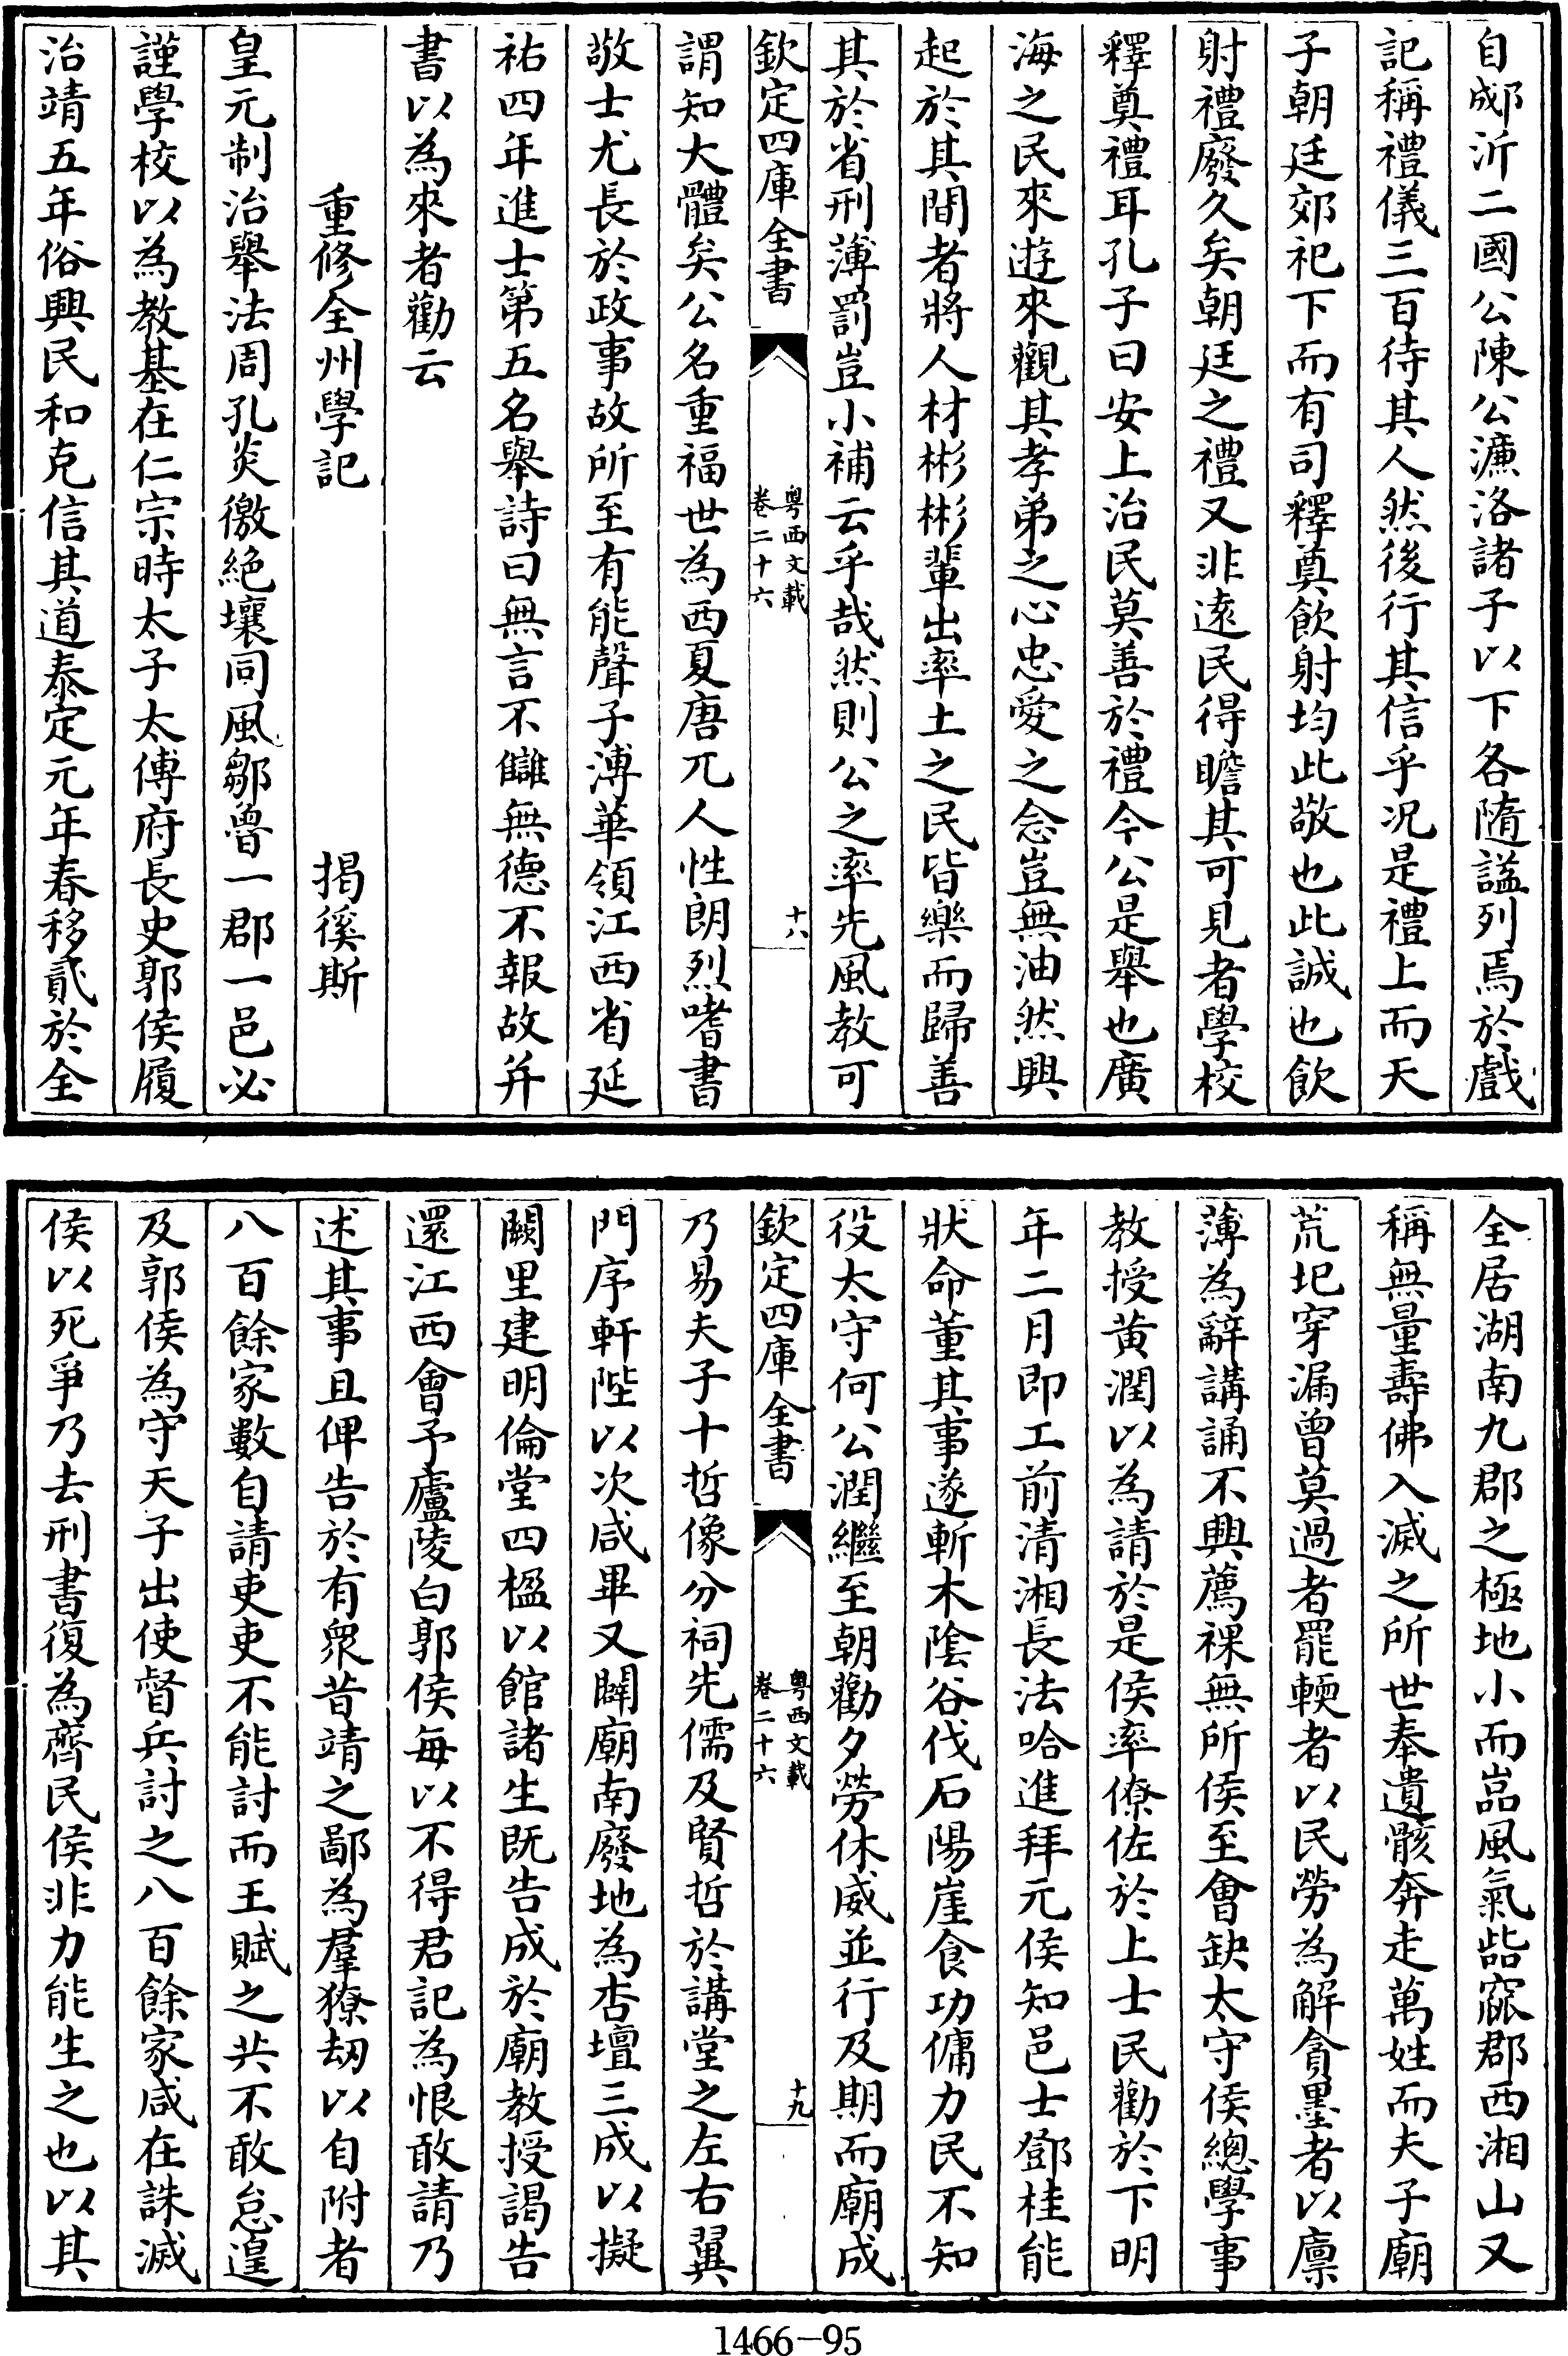 自郕沂二國公陳公濂洛諸子以下各隨諡列焉於戲
記稱禮儀三百待其人然後行其信乎況是禮上而天
子朝廷郊祀下而有司釋奠飲射均此敬也此誠也飲
射禮廢久矣朝廷之禮又非逺民得瞻其可見者學校
釋奠禮耳孔子曰安上治民莫善於禮今公是舉也廣
海之民來遊來觀其孝弟之心忠愛之念豈無油然興
起於其間者將人材彬彬輩出率土之民皆樂而歸善
其於省刑薄罰豈小補云乎哉然則公之率先風教可
欽定四庫全書
粤西文載
卷二十六
十八
謂知大體矣公名重福世為西夏唐兀人性朗烈嗜書
敬士尤長於政事故所至有能聲子溥華領江西省延
祐四年進士第五名舉詩曰無言不讎無德不報故并
書以為來者勸云
重修全州學記
揭徯斯
皇元制治舉法周孔炎徼絶壤同風鄒魯一郡一邑必
謹學校以為教基在仁宗時太子太傅府長史郭侯履
治靖五年俗興民和克信其道泰定元年春移貳於全
全居湖南九郡之極地小而嵓風氣呰窳郡西湘山又
稱無量壽佛入滅之所世奉遺骸奔走萬姓而夫子廟
荒圯穿漏曽莫過者罷輭者以民勞為解貪墨者以廪
薄為辭講誦不興薦祼無所侯至會缺太守侯總學事
教授黄潤以為請於是侯率僚佐於上士民勸於下明
年二月即工前清湘長法哈進拜元侯知邑士鄧桂能
狀命董其事遂斬木陰谷伐石陽崖食功傭力民不知
役太守何公潤繼至朝勸夕勞休威並行及期而廟成
欽定四庫全書
粤西文載
卷二十六
十九
乃易夫子十哲像分祠先儒及賢哲於講堂之左右翼
門序軒陛以次咸畢又闢廟南廢地為杏壇三成以擬
闕里建明倫堂四楹以館諸生既告成於廟教授謁告
還江西會予廬陵白郭侯每以不得君記為恨敢請乃
述其事且俾告於有衆昔靖之鄙為羣獠刼以自附者
八百餘家數自請吏吏不能討而王賦之共不敢怠遑
及郭侯為守天子出使督兵討之八百餘家咸在誅滅
侯以死爭乃去刑書復為齊民侯非力能生之也以其
1466-95